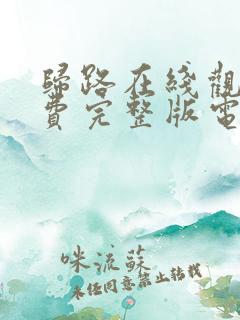 歸路在綫觀
費完整版電
咪流蘇
未經同意禁止轉載